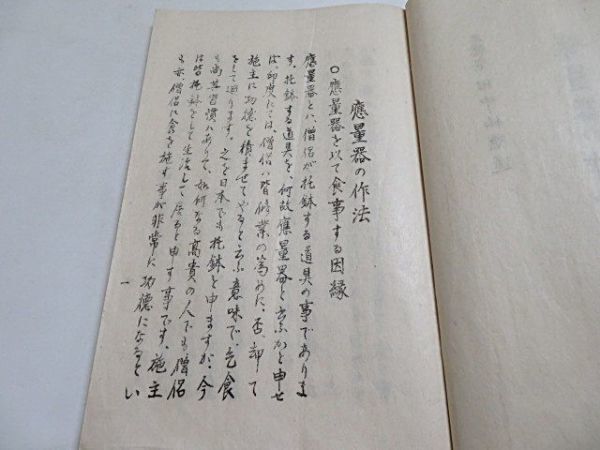 應量器の作法
○應量器を以て食事する因縁
應量器とは、僧侶が托鉢する道具の事でありま
す。托鉢する道具を、何故應量器と云ふかと申せ
ば、印度にては、僧侶は皆修業の為めに、否、却て
施主に功徳を積ませてやると云ふ意味で、乞食
をして廻ります。之を日本でも托鉢と申ますが、今
も尚其習慣にありて、如何なる高貴の人でも僧侶
は皆托鉢をして生活して居ると申す事です。施主
も亦、僧侶に食を施す事が非常に功徳になるとい
一